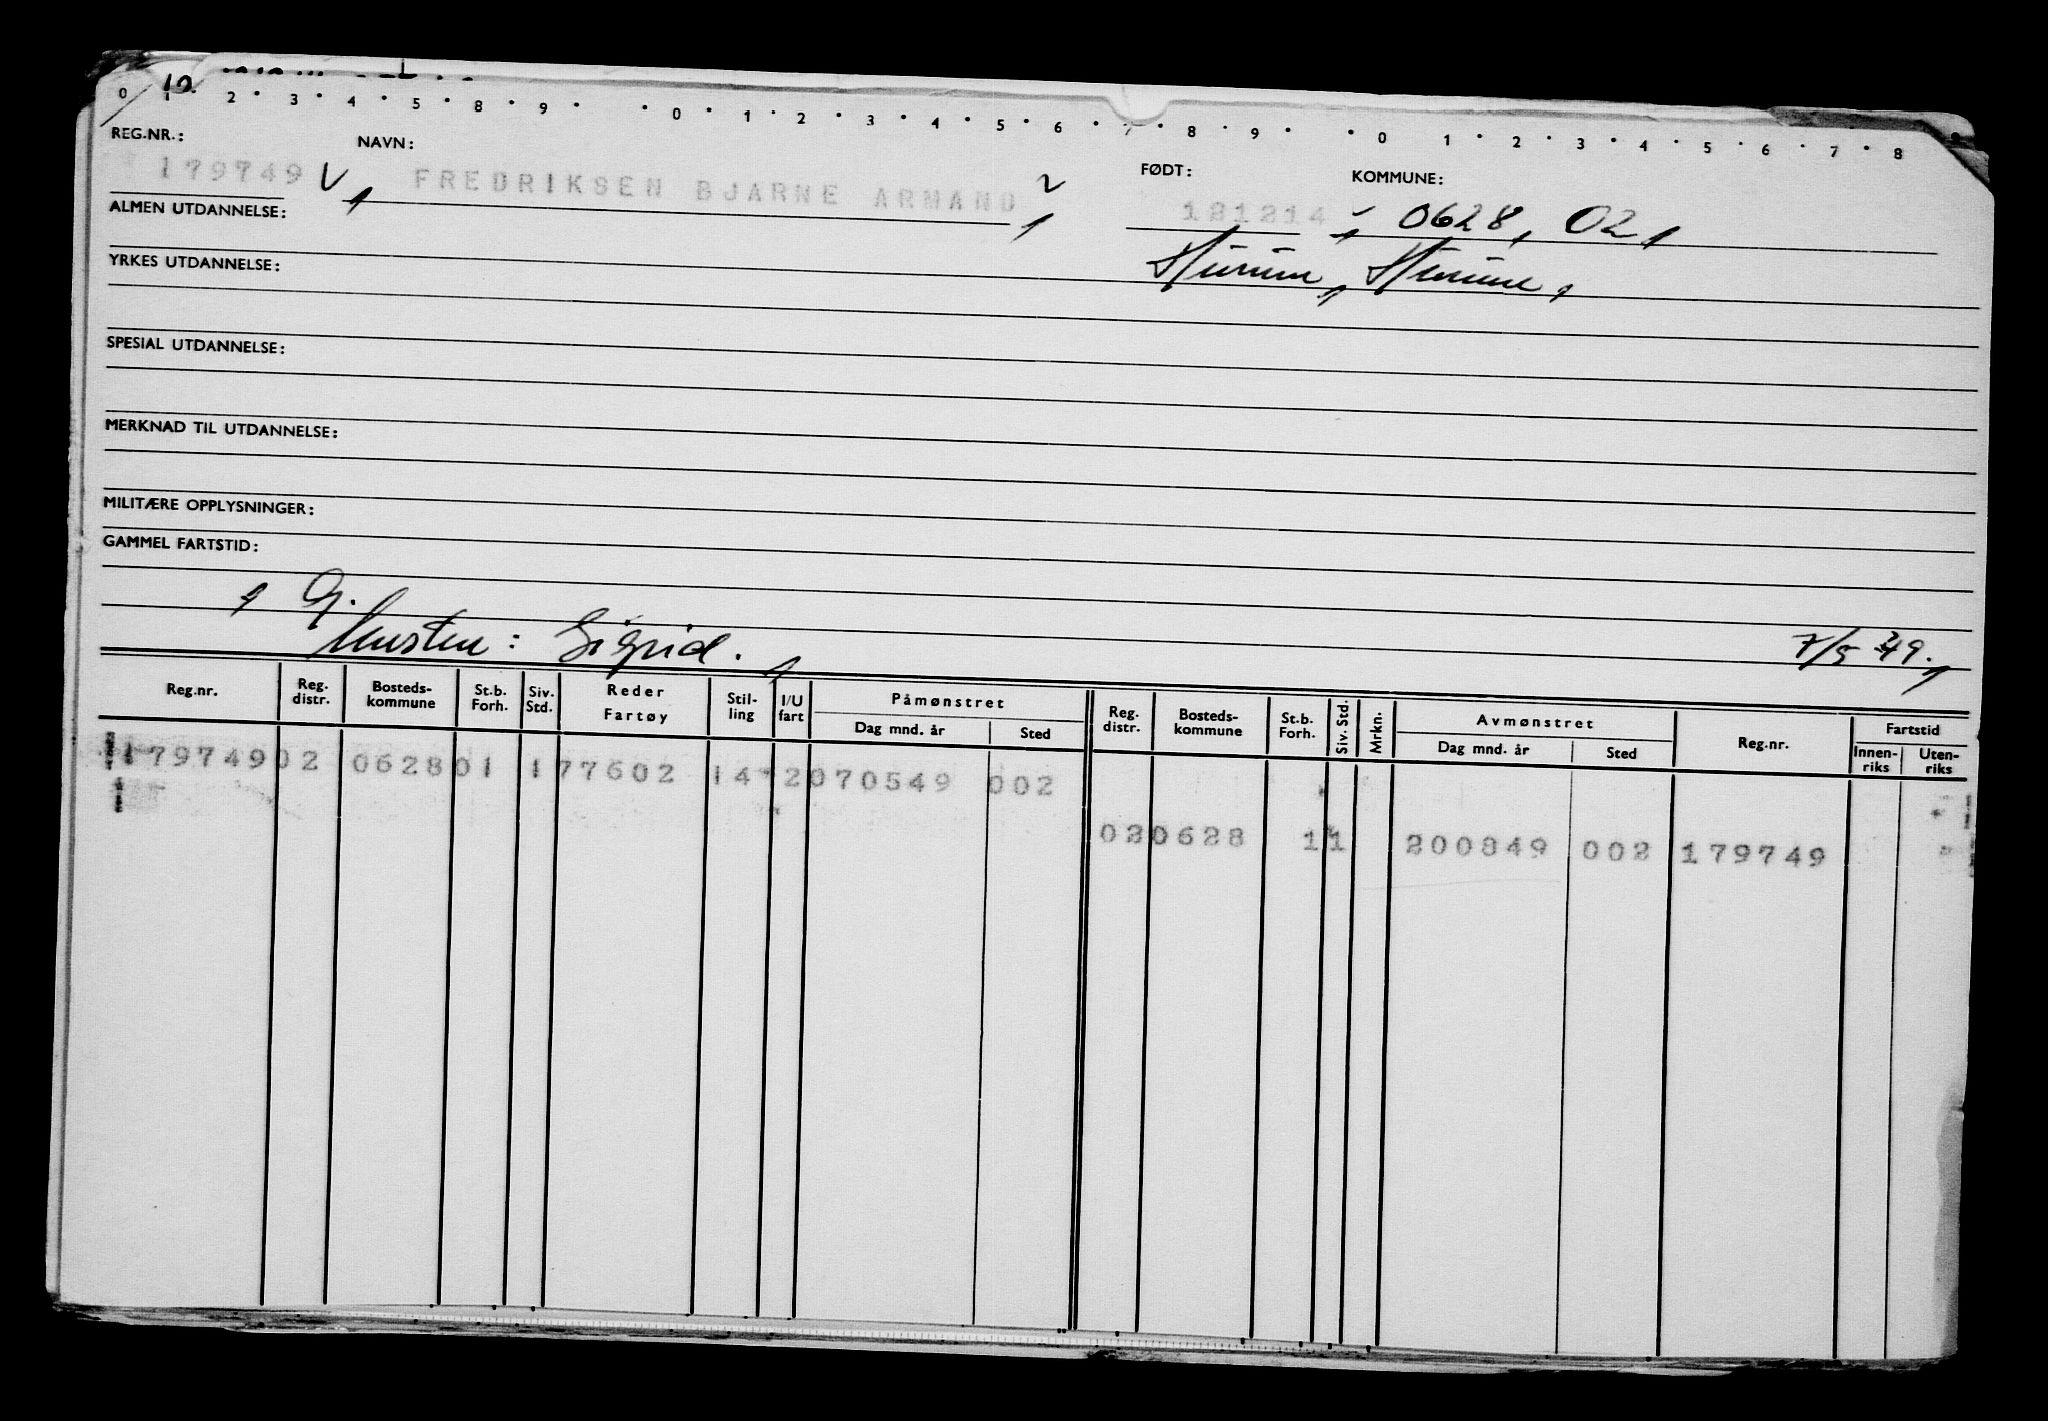 0 1 2 3 4 5 8 9 0 1 2 3 4 5 6 7 8 9 0 1 2 3 4 5 6 7 8
REG.NR.: NAVN: FØDT: KOMMUNE:
179749 FREDRIKSEN BJARNE ARMAND 121214 0628, 02,
ALMEN UTDANNELSE:
Hurum, Hurum,
YRKES UTDANNELSE:
SPESIAL UTDANNELSE:
MERKNAD TIL UTDANNELSE:
MILITÆRE OPPLYSNINGER:
GAMMEL FARTSTID:
G.
Hustru: Sigrid. 7/5 49.
Reg.nr. Reg. distr. Bosteds-kommune St.b. Forh. Siv. Std. Reder Fartøy Stil-ling I/U fart Påmønstret Dag mnd. år Sted Reg. distr. Bosteds-kommune St.b. Forh. Siv. Std. Mrkn. Avmønstret Dag mnd. år Sted Reg.nr. Fartstid Innen-riks Uten-riks
179749 02 0628 01 1 77602 14 2 070549 002
02 0628 1 1 200849 002 179749